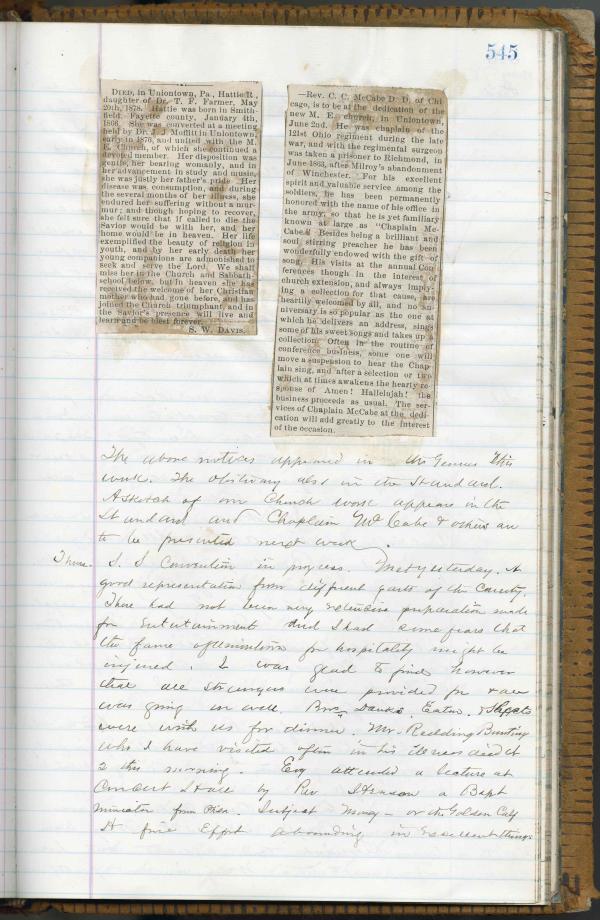 545
DIED, in Uniontown, Pa., Hattie R.,
daughter of Dr. T. F. Farmer, May
20th, 1878. Hattie was born in Smith-
field, Fayette county, January 4th,
1866. She was converted at a meeting
held by Dr. J. J. Moffitt in Uniontown,
early in 1876, and united with the M.
E. Church, of which she continued a
devoted member. Her disposition was
gentle, her bearing womanly, and in
her advancement in study and music,
she was justly her father's pride. Her
disease was consumption, and during
the several months of her illness, she
endured her suffering without a mur-
mur; and though hoping to recover,
she felt sure that if called to die the
Savior would be with her, and her
home would be in heaven. Her life
exemplified the beauty of religion in
youth, and by her early death her
young companions are admonished to
seek and serve the Lord. We shall
miss her in the Church and Sabbath-
school below, but in heaven she has
received the welcome of her Christian
mother who had gone before, and has
joined the Church triumphant, and in
the Savior's presence will live and
learn and be blest forever.
S. W. DAVIS.
—Rev. C. C. McCabe D. D. of Chi
cago, is to be at the dedication of the
new M. E. church, in Uniontown,
June 2nd. He was chaplain of the
121st Ohio regiment during the late
war, and with the regimental surgeon
was taken a prisoner to Richmond, in
June 1863, after Milroy's abandonment
of Winchester. For his excellent
spirit and valuable service among the
soldiers, he has been permanently
honored with the name of his office in
the army, so that he is yet familiary
known at large as "Chaplain Mc-
Cabe." Besides being a brilliant and
soul stirring preacher he has been
wonderfully endowed with the gift of
song. His visits at the annual Con
ferences though in the interest of
church extension, and always imply-
ing a collection for that cause, are
heartily welcomed by all, and no an-
niversary is so popular as the one at
which he delivers an address, sings
some of his sweet songs and takes up a
collection. Often in the routine of
conference business, some one will
move a suspension to hear the Chap-
lain sing, and after a selection or two
which at times awakens the hearty re-
sponse of Amen! Hallelujah! the
business proceeds as usual. The ser-
vices of Chaplain McCabe at the dedi-
cation will add greatly to the interest
of the occasion.
The above notices appeared in the Genius this
week. The obituary also in the Standard.
A sketch of our Church work appears in the
Standard and Chaplain McCabe & others are
to be presented next week.
Thurs. S. S Convention in progress. Met yesterday. A
good representation from different parts of the County.
There had not been very extensive preparation made
for entertainment and I had some fears that
the fame of Uniontown for hospitality might be
injured. I was glad to find however
that all strangers were provided for & all
was going on well. Bros Danks, Eaton, &
were with us for dinner. Mr. Redding Bunting
who I have visited often in his illness died at
2 this morning. Eve attended a lecture at
Concert Hall by Rev Henson a Bapt
minister from Phila. Subject Money - or the Golden Calf
A fine Effort abounding in excellent things